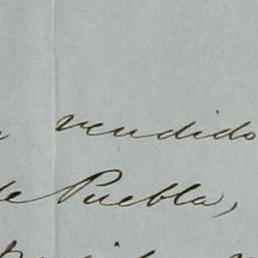 vendido
de Puebla,